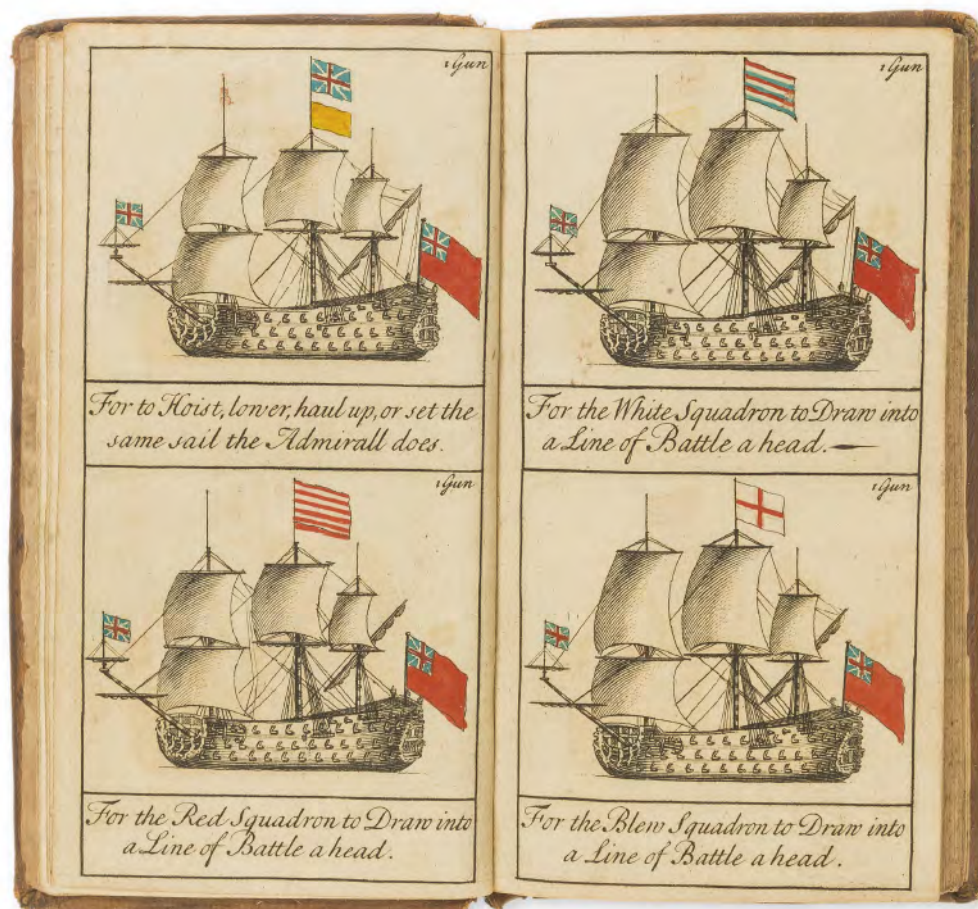 1 Gun
For to Hoist, lower, haul up, or set the
same sail the Admirall does.
1 Gun
For the Red Squadron to Draw into
a Line of Battle a head.
1 Gun
For the White Squadron to Draw into
a Line of Battle a head. —
1 Gun
For the Blew Squadron to Draw into
a Line of Battle a head.